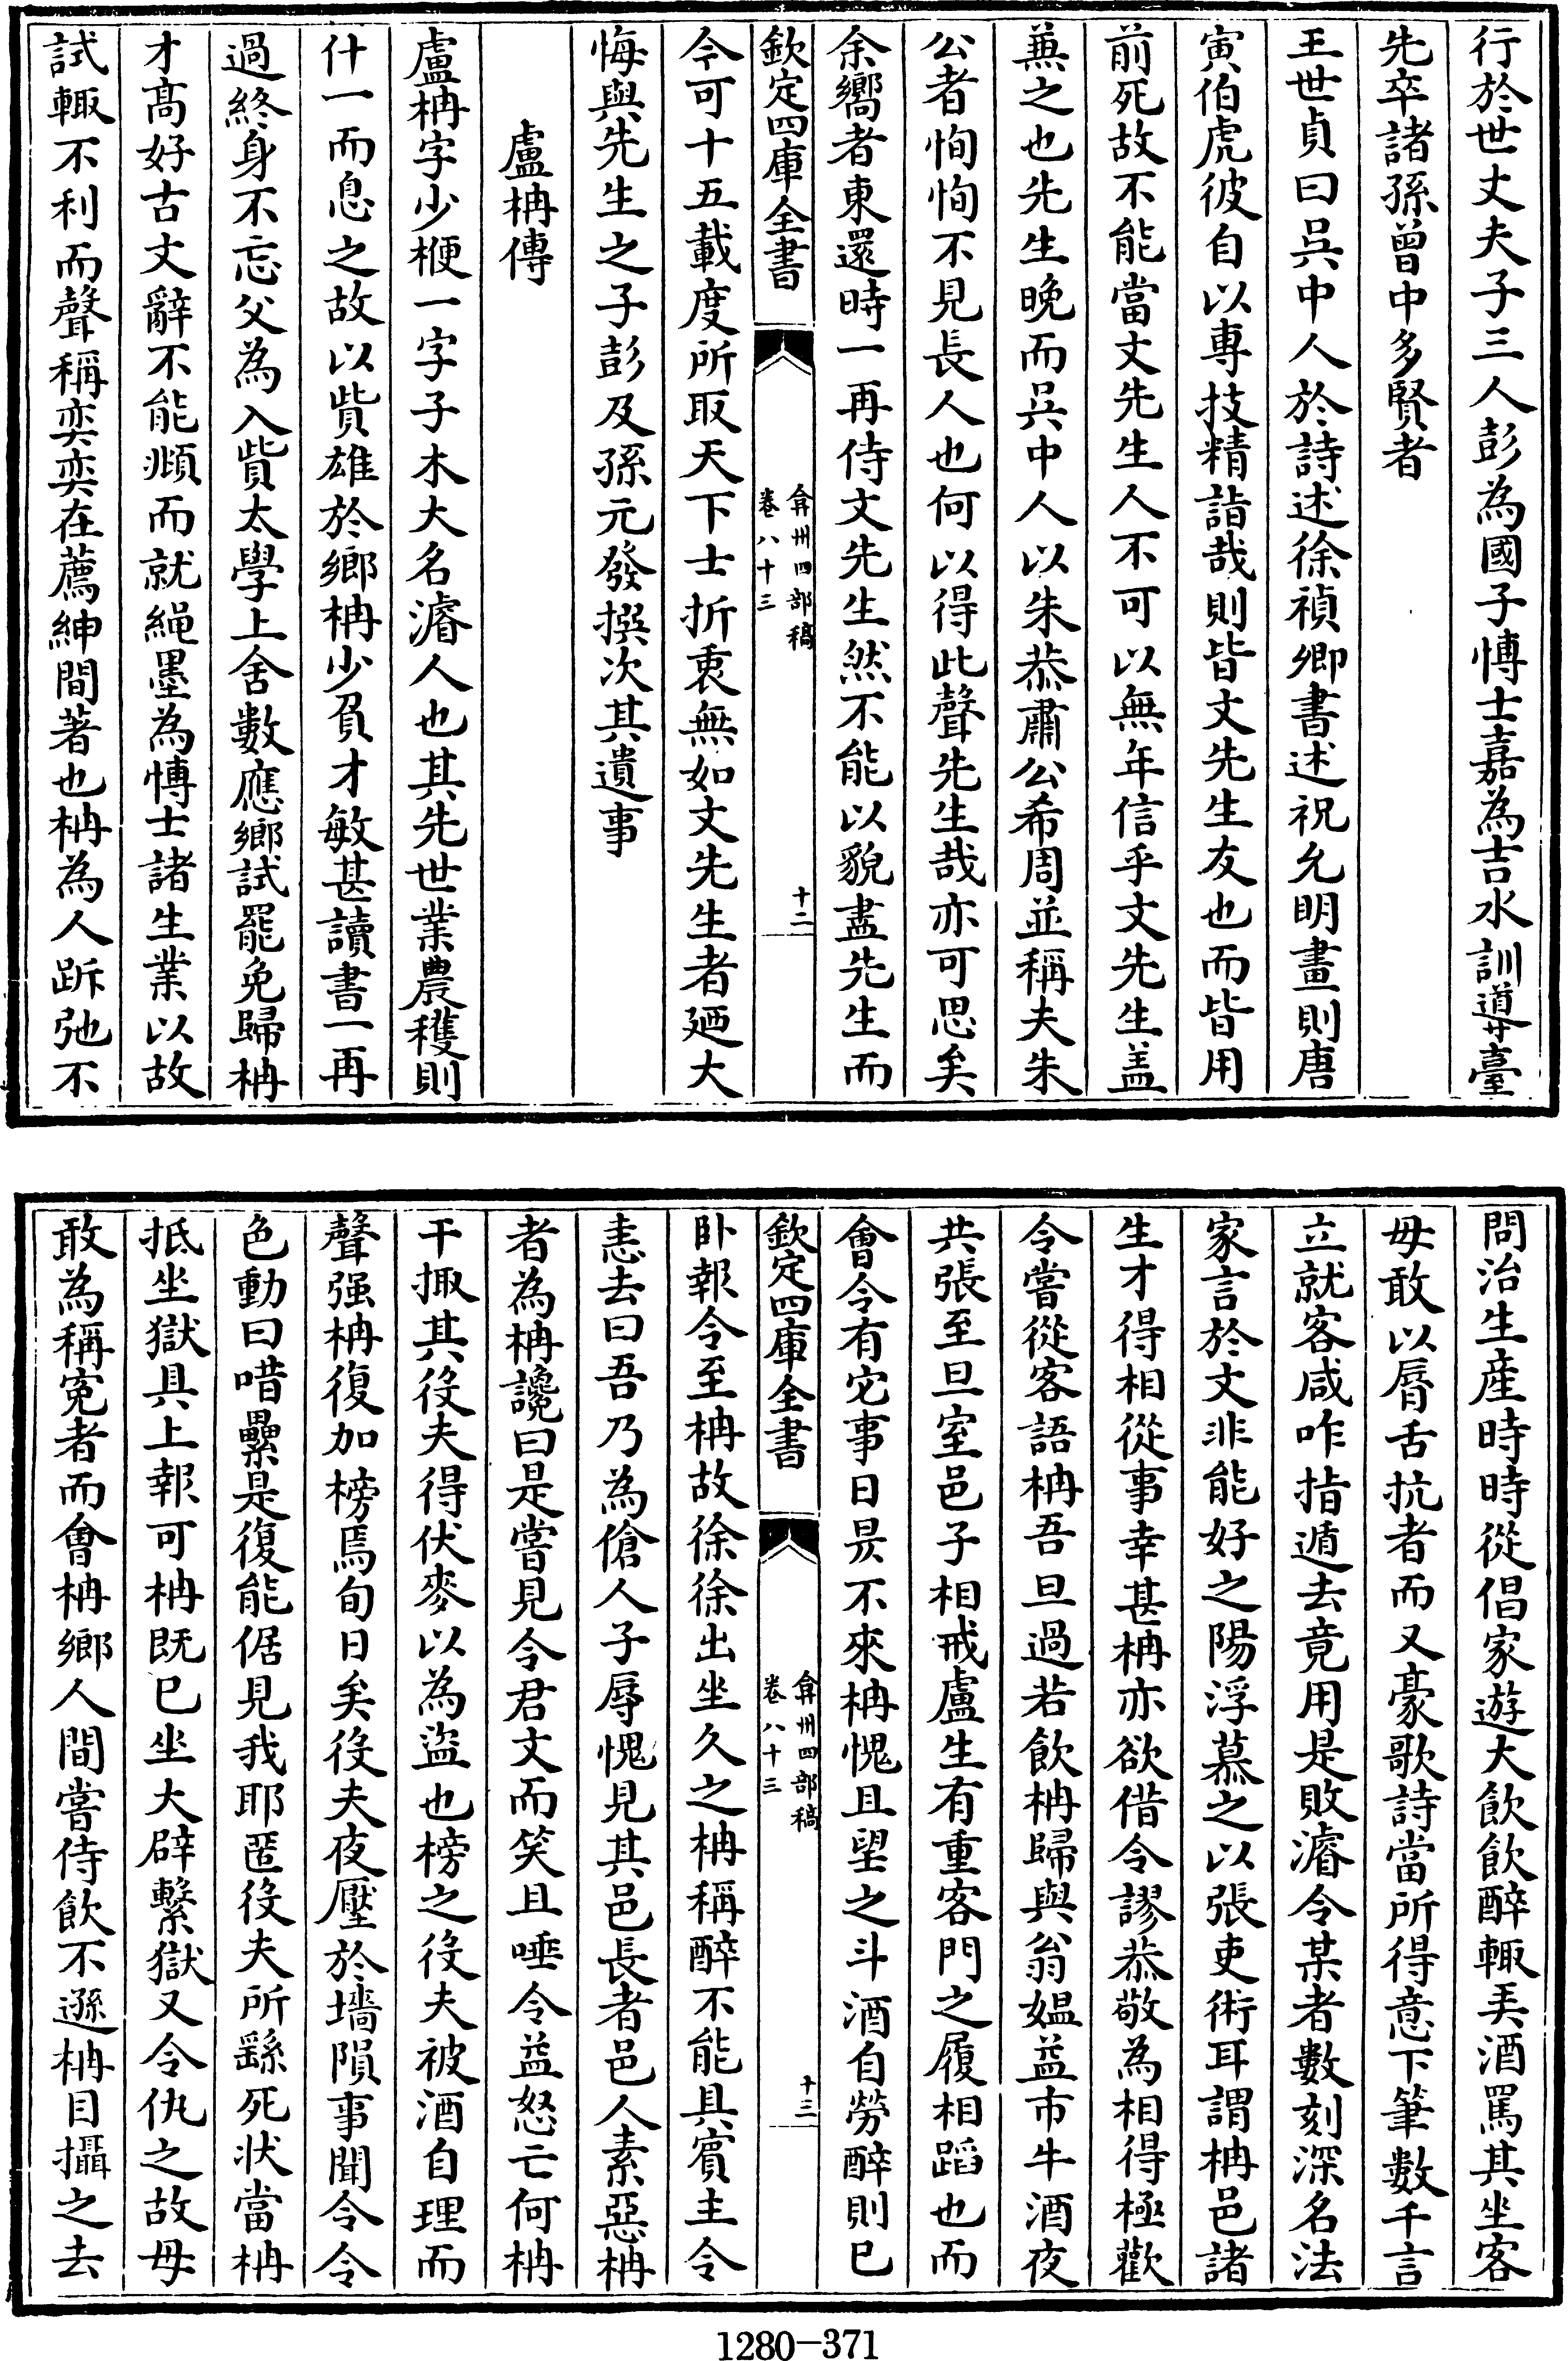 行於世丈夫子三人彭為國子博士嘉為吉水訓導臺
先卒諸孫曾中多賢者
王世貞曰吳中人於詩述徐禎卿書述祝允明畫則唐
寅伯虎彼自以專技精詣哉則皆文先生友也而皆用
前死故不能當文先生人不可以無年信乎文先生盖
兼之也先生晚而吳中人以朱恭肅公希周並稱夫朱
公者恂恂不見長人也何以得此聲先生哉亦可思矣
余嚮者東還時一再侍文先生然不能以貌盡先生而
欽定四庫全書
弇州四部稿
卷八十三
十二
今可十五載度所取天下士折衷無如文先生者廼大
悔與先生之子彭及孫元發撰次其遺事
盧柟傳
盧柟字少楩一字子木大名濬人也其先世業農穫則
什一而息之故以貲雄於鄉柟少負才敏甚讀書一再
過終身不忘父為入貲太學上舍數應鄉試罷免歸柟
才高好古文辭不能頫而就繩墨為博士諸生業以故
試輙不利而聲稱奕奕在薦紳間著也柟為人跅弛不
問治生産時時從倡家遊大飲飲醉輙美酒罵其坐客
毋敢以脣舌抗者而又豪歌詩當所得意下筆數千言
立就客咸咋指遁去竟用是敗濬令某者數刻深名法
家言於文非能好之陽浮慕之以張吏術耳謂柟邑諸
生才得相從事幸甚柟亦欲借令謬恭敬為相得極歡
令嘗從客語柟吾旦過若飲柟歸與翁媼益市牛酒夜
共張至旦室邑子相戒盧生有重客門之履相蹈也而
會令有它事日昃不來柟愧且望之斗酒自勞醉則已
欽定四庫全書
弇州四部稿
卷八十三
十三
卧報令至柟故徐徐出坐久之柟稱醉不能具賓主令
恚去曰吾乃為傖人子辱愧見其邑長者邑人素惡柟
者為柟讒曰是嘗見令君文而笑且唾令益怒亡何柟
干掫其役夫得伏麥以為盜也榜之役夫被酒自理而
聲强柟復加榜焉旬日矣役夫夜壓於墻隕事聞令令
色動曰唶纍是復能倨見我耶匿役夫所繇死狀當柟
抵坐獄具上報可柟既已坐大辟繫獄又令仇之故毋
敢為稱冤者而會柟鄉人間嘗侍飲不遜柟目攝之去
1280-371